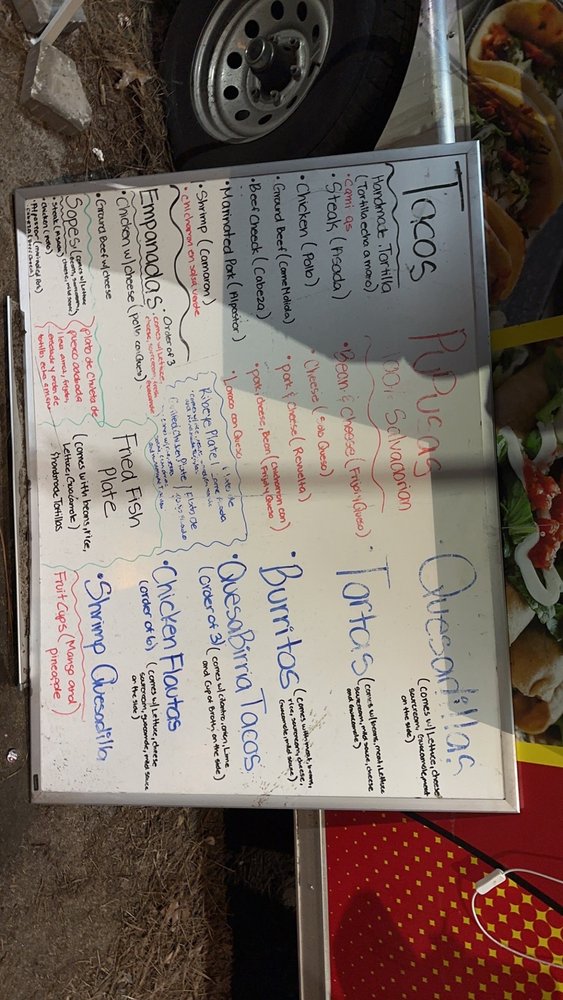 Tacos
Handmade Tortilla
(Tortilla echa a mano)
• Carni as
• Steak (Asada)
• Chicken (Pollo)
• Ground Beef (Carne Molida)
• Beef Cheek (Cabeza)
• Marinated Pork (Al pastor)
• Shrimp (Camaron)
• Chicharon en salsa verde
Empanadas • Order of 3
• comes w/ Lettuce
cheese, sourcream
• Chicken w/ cheese (pollo con Queso)
• Ground Beef w/ cheese
Sopes (comes w/ Lettuce,
• Steak (Asada)
• Chicken (Pollo)
Pupucas
100% Salvadorian
• Bean & cheese (Frijol & Queso)
• Cheese (Solo Queso)
• pork & cheese (Revuelta)
• pork, cheese, Bean (Chicharron con
Frijol y Queso)
• Loroco con Queso
Ribeye Plate
Grilled chicken Plate / Plato de
plato de Chuleta de
puerco
Fried Fish
Plate
(comes with beans, rice,
Lettuce, Guacamole)
Handmade Tortillas
• Quesadillas
(comes w/ Lettuce, cheese
sourcream, Guacamole, meat
on the side)
• Tortas (comes w/ beans, meat, Lettuce
sourcream, mild sauce, cheese
and Guacamole)
• Burritos (comes with meat, beans,
rice, sourcream, cheese,
Guacamole, mild sauce)
• QuesaBirria Tacos
(order of 3) (comes w/ cilantro, onion, Lime
and Cup of Broth on the side)
• Chicken Flautas
(order of 6) (comes w/ Lettuce, cheese
sourcream, guacamole, mild sauce
on the side)
• Shrimp Quesadilla
Fruit Cups (Mango and
pineapple)